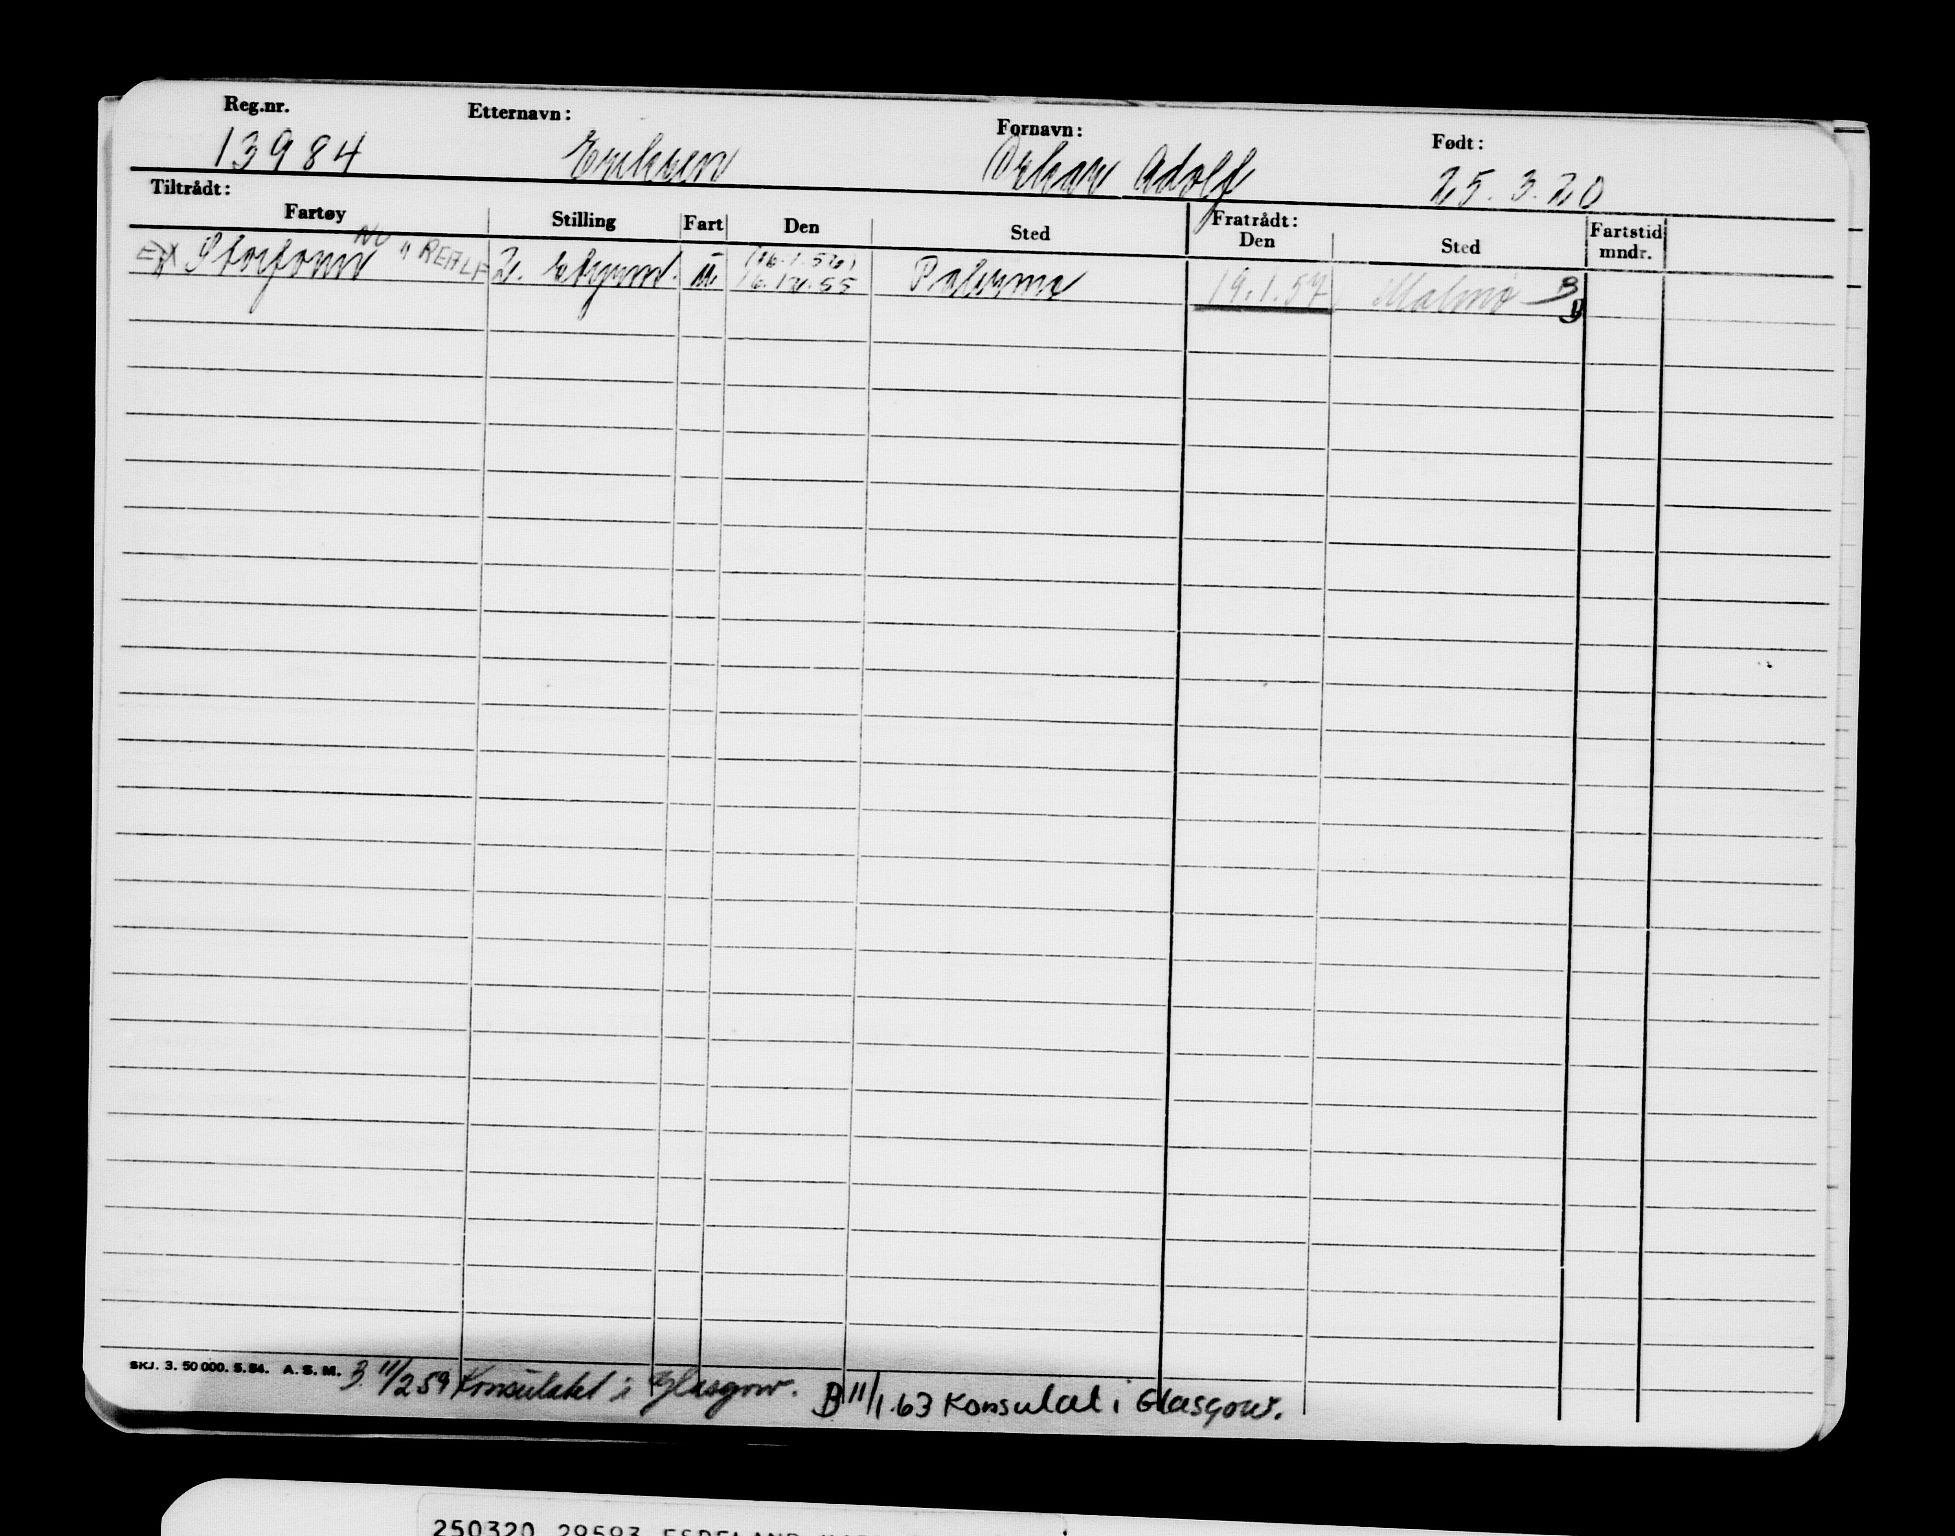 Reg.nr. Etternavn: Fornavn: Født:
13984 Eriksen Oskar Adolf 25.3.20
Tiltrådt: Fratrådt:
Fartøy Stilling Fart Den Sted Den Sted Fartstid mndr.
NU (16.1.56)
EX Storfonn "REALF 2. 16.12.55 Palermo 19.1.57 Malmö B
SKJ. 3. 50 000. 5.54. A. S. M. 3 11/2 59 Konsulatet i Glasgow. B 11/1.63 Konsulat i Glasgow.
250320 29593 ESPELAND